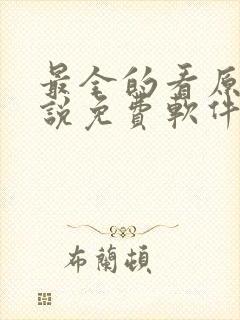 最全的看原
說免費軟件
布蘭頓